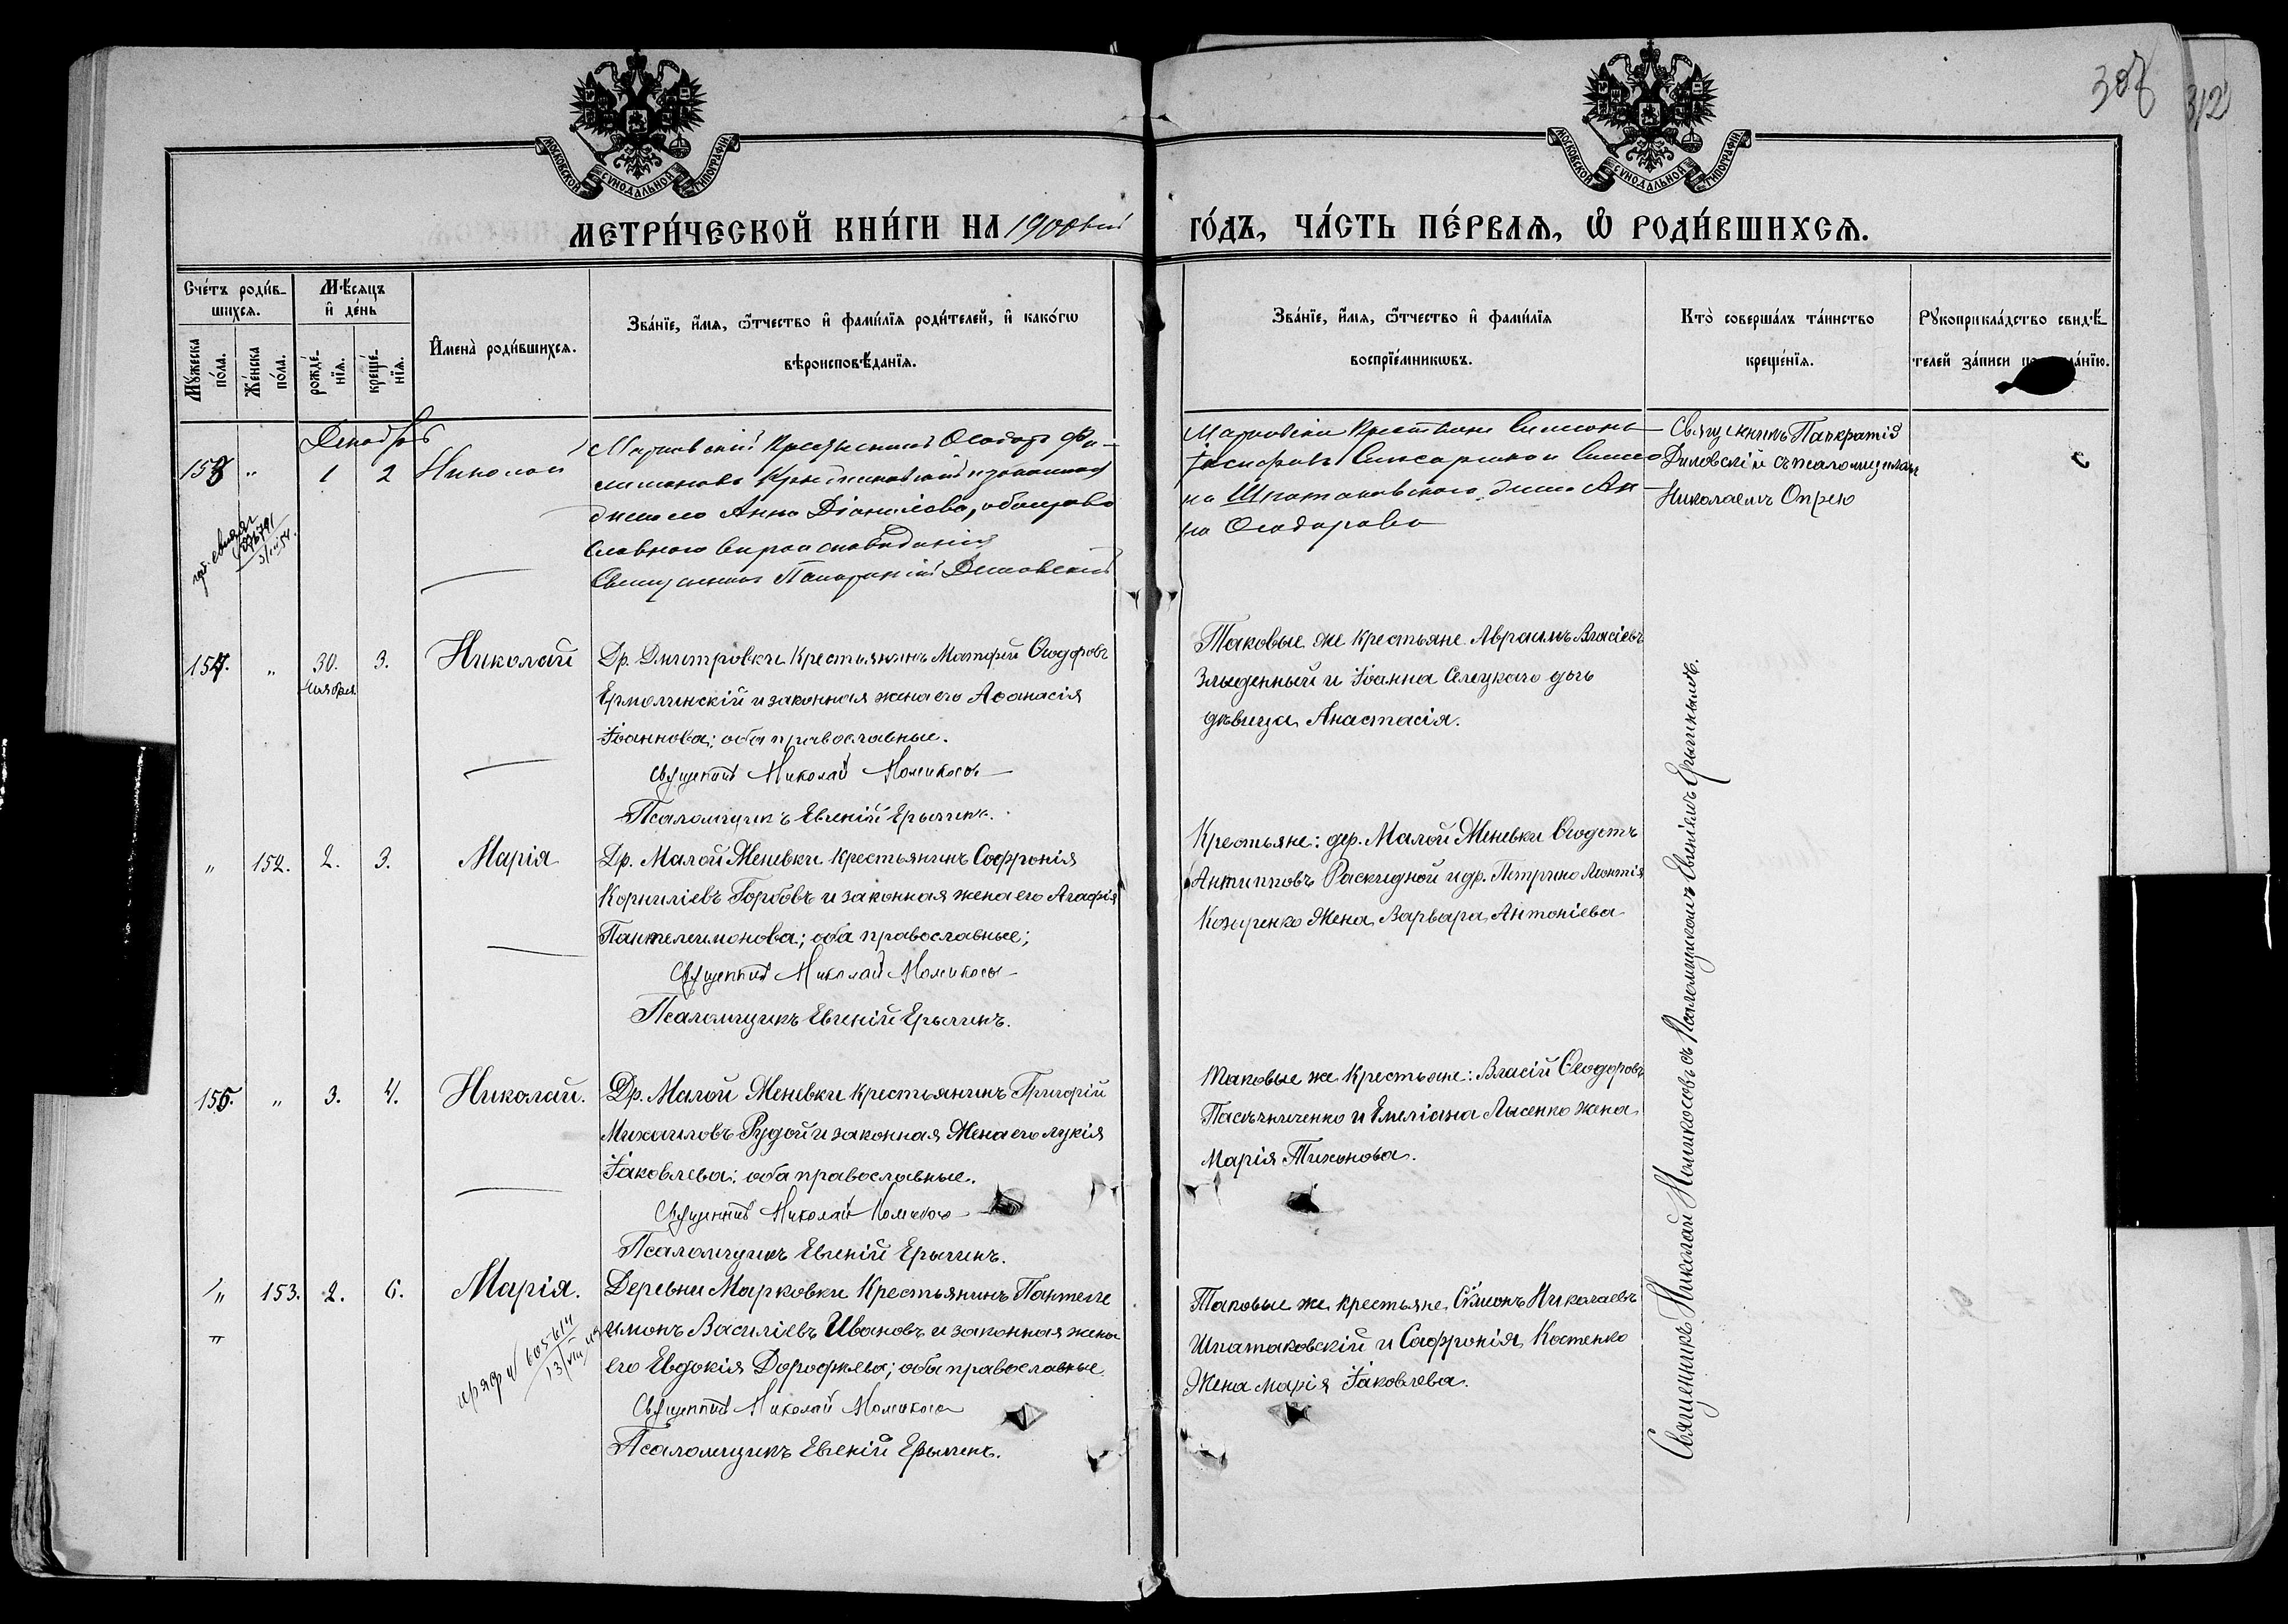 308
312
МОСКОВСКОЙ СѴНОДАЛЬНОЙ ТИПОГРАФІИ
МОСКОВСКОЙ СѴНОДАЛЬНОЙ ТИПОГРАФІИ
МЕТРИ́ЧЕСКОЙ КНИ́ГИ НА 1900 вый
ГО́ДЪ, ЧА́СТЬ ПЕ́РВАѦ, Ѡ҆ РОДИ́ВШИХСѦ.
Сче́тъ роди́в-
шихсѧ.
Мꙋ́жеска
по́ла.
Же́нска
по́ла.
Мѣ́сѧцъ
и҆ де́нь
рожде́-
нїѧ.
креще́-
нїѧ.
И҆мена̀ роди́вшихсѧ.
Зва́нїе, и҆́мѧ, ѻ҆́тчество и҆ фами́лїѧ роди́телей, и҆ како́гѡ
вѣроисповѣ́данїѧ.
Зва́нїе, и҆́мѧ, ѻ҆́тчество и҆ фами́лїѧ
воспрїе́мникѡвъ.
Кто̀ соверша́лъ та́инство
креще́нїѧ.
Рꙋкоприкла́дство свидѣ́-
телей за́писи
Декабрь
153 " 1 2 Николай
Марковскій Крестьянинъ Ѳеодотъ Фи-
и законная
жена его Анна Даніилова, оба право
славнаго вѣроисповѣданія
Священникъ Панкратій Димовскій
Марковскіи Крестьяне Симеонъ
Іосифовъ и Симео
на Шпатаковскаго жена Ан
на Ѳеодорова
Священникъ Панкратій
Димовскій съ псаломщикомъ
Николаемъ Опрею
154. " 30. Ноября 3. Николай
Др. Дмитровки крестьянинъ Матфей Ѳеодоровъ
Ермолинскій и законная жена его Аѳанасія
Іоаннова; оба православные.
Священникъ Николай Номикосъ
Псаломщикъ Евгеній Ерыгинъ.
Таковые же крестьяне Авраамъ Власіевъ
Злыденный и Іоанна Селецкаго дочь
дѣвица Анастасія.
" 152. 2. 3. Марія
Др. Малой Женевки крестьянинъ Софроній
Корниліевъ Горбовъ и законная жена его Агафія
Пантелеимонова; оба православные;
Священникъ Николай Номикосъ
Псаломщикъ Евгеній Ерыгинъ.
Крестьяне: дер. Малой Женевки Ѳеодотъ
Антиповъ Раскидной и др. Петрино Леонтія
Козиренко жена Варвара Антоніева
155. " 3. 4. Николай.
Др. Малой Женевки крестьянинъ Григорій
Михаиловъ Рудой и законная жена его Лукія
Іаковлева; оба православные.
Священникъ Николай Номикосъ
Псаломщикъ Евгеній Ерыгинъ.
Таковые же крестьяне: Власій Ѳеодоровъ
Пасѣчниченко и Емеліана Лысенко жена
Марія Тихонова.
" 153. 2. 6. Марія.
605614
Деревни Марковки Крестьянинъ Пантеле
имонъ Василіевъ Ивановъ и законная жена
его Евдокія Дорофѣева; оба православные
Священникъ Николай Номикосъ
Псаломщикъ Евгеній Ерыгинъ.
Таковые же крестьяне Сѵмеонъ Николаевъ
Шпатаковскій и Софронія Костенко
жена Марія Іаковлева.
Священникъ Николай Номикосовъ съ Псаломщикомъ Евгеніемъ Ерыгинымъ.